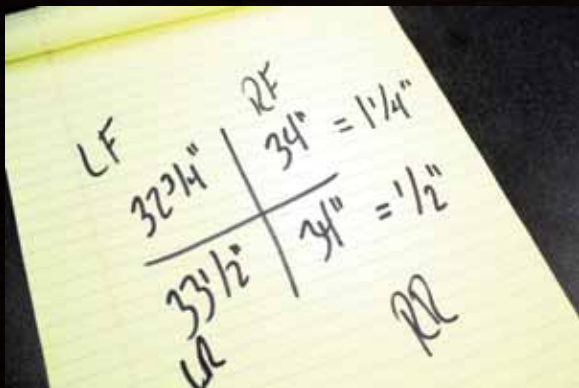 LF RF
32 3/4" 34" = 1 1/4"
33 1/2" 34" = 1/2"
LR RR